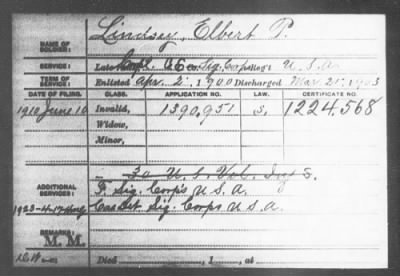 NAME OF SOLDIER: Lindsay, Elbert P.
SERVICE: Late Corpl. Co. Sig. Corps Reg't U.S.A.
TERM OF SERVICE: Enlisted Apr. 2, 1900 Discharged Mar 21, 1903
DATE OF FILING. CLASS. APPLICATION NO. LAW. CERTIFICATE NO.
1910 June 10 Invalid, 1390,951 S. 1224.568
Widow,
Minor,
ADDITIONAL SERVICES: 30 U.S. Vol. Inf. S.
F. Sig. Corps U.S.A.
1923-4-17 Cas Det. Sig. Corps U.S.A.
REMARKS:
M. M.
Died , 1 , at